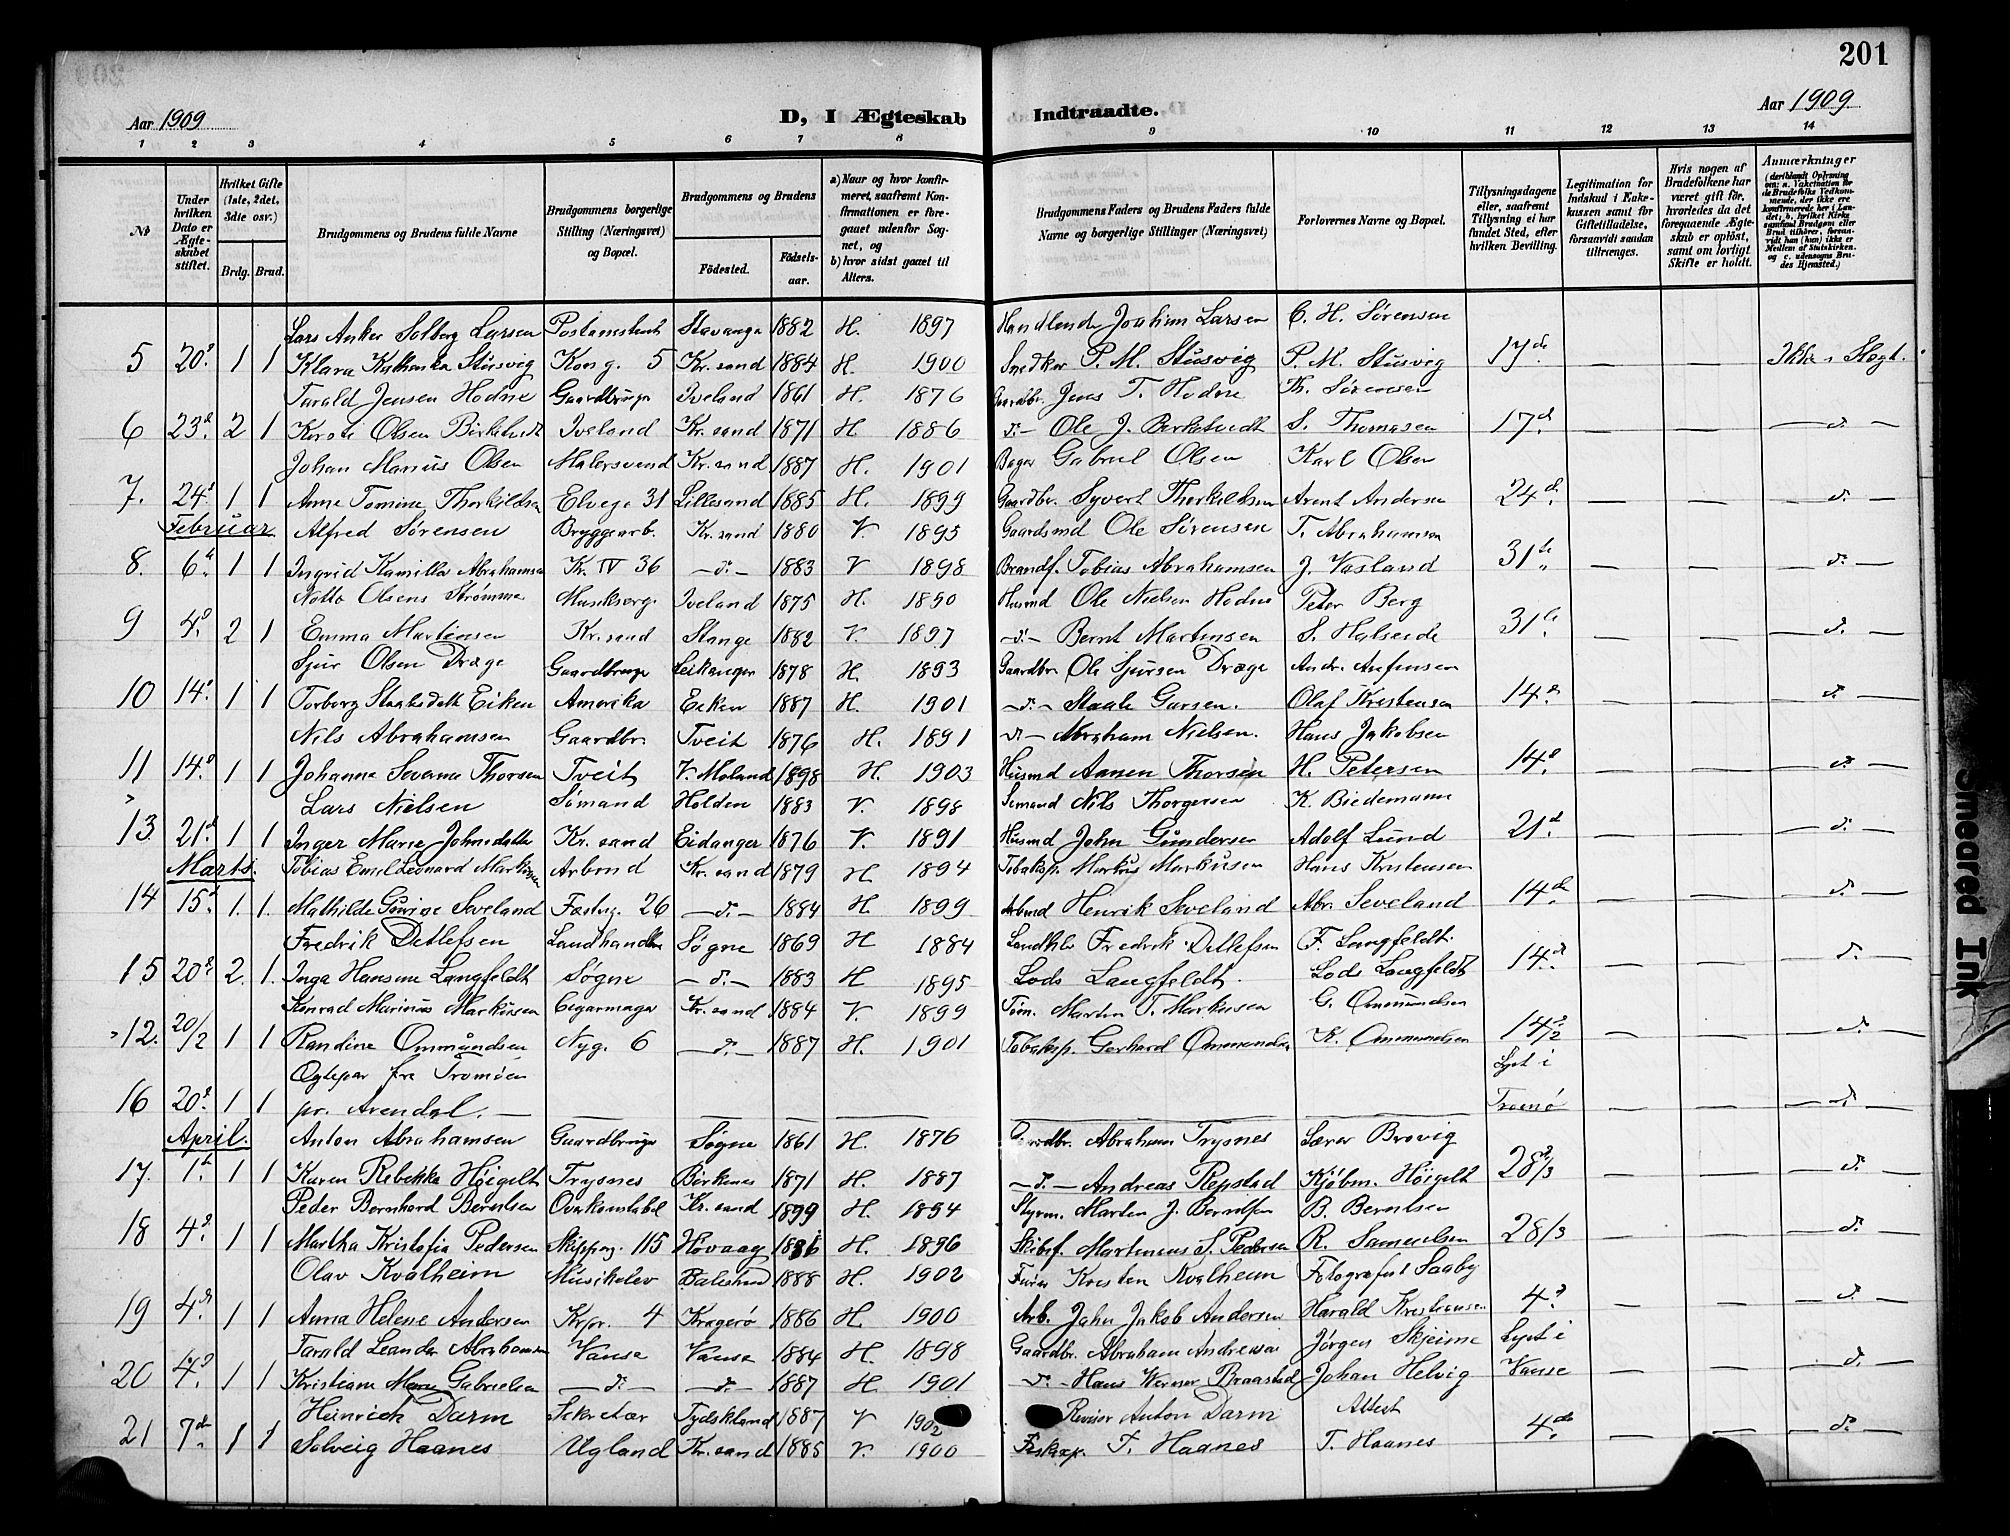 201
Aar 1909
D, I Ægteskab Indtraadte.
Aar 1909
1 2 3 4 5 6 7 8 9 10 11 12 13 14
No
Under hvilken Dato er Ægteskabet stiftet.
Hvilket Gifte (1ste, 2det, 3die osv.)
Brdg. Brud.
Brudgommens og Brudens fulde Navne
Brudgommens borgerlige Stilling (Næringsvei) og Bopæl.
Brudgommens og Brudens
Fødested.
Fødsels-aar.
a) Naar og hvor konfirmeret, saafremt Konfirmationen er foregaaet udenfor Sognet, og
b) hvor sidst gaaet til Alters.
Brudgommens Faders og Brudens Faders fulde Navne og borgerlige Stillinger (Næringsvei)
Forlovernes Navne og Bopæl.
Tillysningsdagene eller, saafremt Tillysning ei har fundet Sted, efter hvilken Bevilling.
Legitimation for Indskud i Enkekassen samt for Giftetilladelse, forsaavidt saadan tiltrænges.
Hvis nogen af Brudefolkene har været gift før, hvorledes da det foregaaende Ægteskab er opløst, samt om lovligt Skifte er holdt.
Anmærkninger (deriblandt Oplysning om: a. Vakcination for de Brudefolks Vedkommende, der ikke ere konfirmerede her i Landet; b. hvilket Kirkesamfund Brudgom eller Brud tilhører, forsaavidt han (hun) ikke er Medlem af Statskirken, og c. udensogns Brudes Hjemsted.)
Lars Anker Solberg Larsen Postassistent Stavanger 1882 H. 1897 Handlende Joahim Larsen C. H. Sørensen
5 20d. 1 1 Klara Stusvig Kong. 5 Kr.sand 1884 H. 1900 Snedker P. M. Stusvig P. M. Stusvig 17de — — Ikke i Slegt.
Tarald Jensen Hodne Gaardbruger Iveland 1861 H. 1876 Gaardbr. Jens T. Hodne Kr. Sørensen
6 23d. 2 1 Olsen Birketvedt Iveland Kr.sand 1871 H. 1886 d.- Ole J. Birketvedt S. Thomasen 17d. — — d. —
Johan Marius Olsen Malersvend Kr.sand 1887 H. 1901 Bager Gabriel Olsen Karl Olsen
7. 24d. 1 1 Anne Tomine Thorkildsen Elvege 31 Lillesand 1885 H. 1899 Gaardbr. Syvert Thorkildsen Arent Andersen 24d. — — d.
Februar. Alfred Sørensen Bryggearb. Kr.sand 1880 V. 1895 Gaardsmd Ole Sørensen T. Abrahamsen
8. 6d. 1 1 Ingrid Kamilla Abrahamsen Kr. IV 36 —d.— 1883 V 1898 Brandf. Tobias Abrahamsen J. Vasland 31te — — d. —
Notto Olsens Strømme Musikserg. Iveland 1875 H. 1890 Husmd Ole Nielsen Hodne Peter Berg
9 4d. 2 1 Emma Martinsen Kr.sand Stange 1882 V. 1897 —d.— Bernt Martinsen S. Halseide 31te — — d.
Sjur Olsen Dræge Gaardbruger Leikanger 1878 H. 1893 Gaardbr. Ole Sjursen Dræge Andr. Anfensen
10 14d. 1 1 Torborg Staalesdatt. Eiken Amerika Eiken 1887 H. 1901 —d.— Staale Olaf Kristensen 14d — — d. —
Nils Abrahamsen Gaardbr. Tveit 1876 H. 1891 d.— Abraham Nielsen. Hans Jakobsen
11 14d. 1 1 Johanne Severine Thorsen Tveit V. Moland 1898 H. 1903 Husmd Aanen Thorsen H. Petersen 14d. — — d. —
Lars Nielsen Sømand Holden 1883 V. 1898 Sømand Nils Thorgersen K. Biedemann
13 21d. 1 1 Inger Marie Johnsdatter Kr. sand Eidanger 1876 V. 1891 Husmd John Gundersen Adolf Lund 21d. — — d. —
Marts. Tobias Emil Leonard Markusen Arbmd Kr.sand 1879 H 1894 Tobaksp. Markus Markusen Hans Kristensen
14 15d. 1. 1. Mathilde Seveland Fæstng. 26 —d.— 1884 H 1899 Arbmd Henrik Seveland Abr. Seveland 14de — — d. —
Fredrik Detlefsen Landhandler Søgne 1869 H 1884 Landhlr Fredrik Detlefsen F. Langfeldt
15 20d. 2. 1. Inga Hansine Langfeldt Søgne —d.— 1883 H 1895 Lods Langfeldt. Lods Langfeldt 14d. — — d.
Konrad Marinus Markusen Cigarmager Kr.sand 1884 V. 1899 Tøm. Martin T. Markusen G. Ommundsen
12. 20/2 1 1 Randine Ommundsen Nyg. 6 —d.— 1887 H. 1901 Tobaksp. Gerhard Ommundsen K. Ommundsen 14/2 — — d. —
Ogtepar fra Tromøen Lyst i
16 20d. 1 1 pr. Arendal. — Tromø — — d. —
April. Anton Abrahamsen Gaardbruger Søgne 1861 H. 1876 Gaardbr. Abraham Trysnes Lærer Brovig
17. 1d. 1 1 Karen Rebekka Høigelt Trysnes Birkenes 1871 H. 1887 —d.— Andreas Repstad Kjøbm. Høigelt 28/3 — — d. —
Peder Bernhard Berntsen Overkonstabel Kr.sand 1899 H. 1894 Styrm. Marten J. Berntsen B. Berntsen
18 4d. 1 1 Martha Kristofia Pedersen Skipperg. 115 Høvaag H. 1896 Skibsf. Martinius S. Pedersen R. Samuelsen 28/3 — — d.
Olav Kvalheim Musikelev Balestrand 1888 H. 1902 Kristen Kvalheim Fotograf Saaby
19 4de 1 1 Anna Helene Andersen Kr.pr. 4 Kragerø 1886 H. 1900 Arb. Jahn Jakob Andersen Harald Kristiansen 4d. — — d. —
Tarald Leander Abrahamsen Vanse Vanse 1884 H. 1898 Gaardbr. Abraham Andreasen Jørgen Skjeime Lyst i
20 4d. 1 1 Kristiane Marie Gabrielsen —d.— —d.— 1887 H 1901 d.— Hans Werner Braastad Johan Helvig Vanse — — d. —
Heinrich Darm Sekretær Tydskland 1887 V 1902 Revisor Anton Darm Attest
21 7de 1 1 Solveig Haanes Ugland Kr.sand 1885 V. 1900 Fiskeop. T. Haanes T. Haanes 4de — — d. —
Smeared Ink